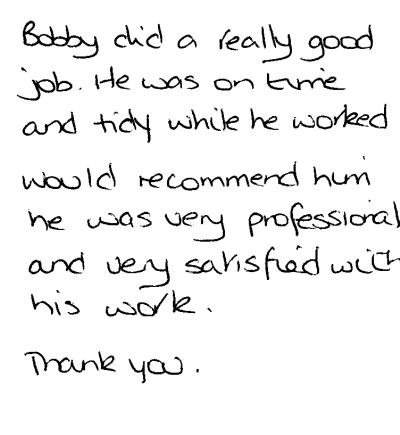 Bobby did a really good
job. He was on time
and tidy while he worked
would recommend him
he was very professional
and very satisfied with
his work.
Thank you.